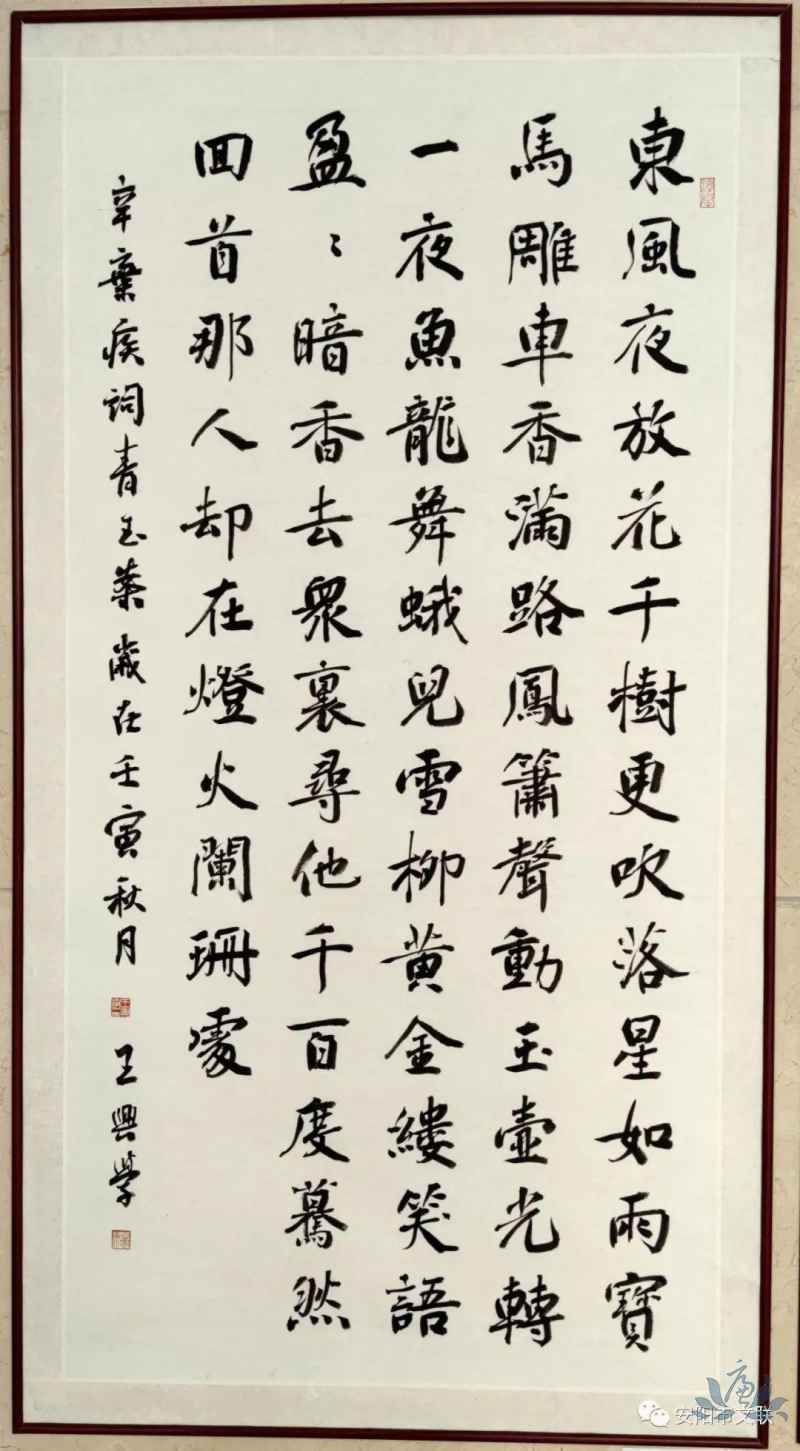 東風夜放花千樹更吹落星如雨寶
馬雕車香滿路鳳簫聲動玉壺光轉
一夜魚龍舞蛾兒雪柳黄金縷笑語
盈〻暗香去衆裏尋他千百度驀然
回首那人却在燈火闌珊處
辛棄疾詞青玉案歲在壬寅秋月
王興學
安阳市文联